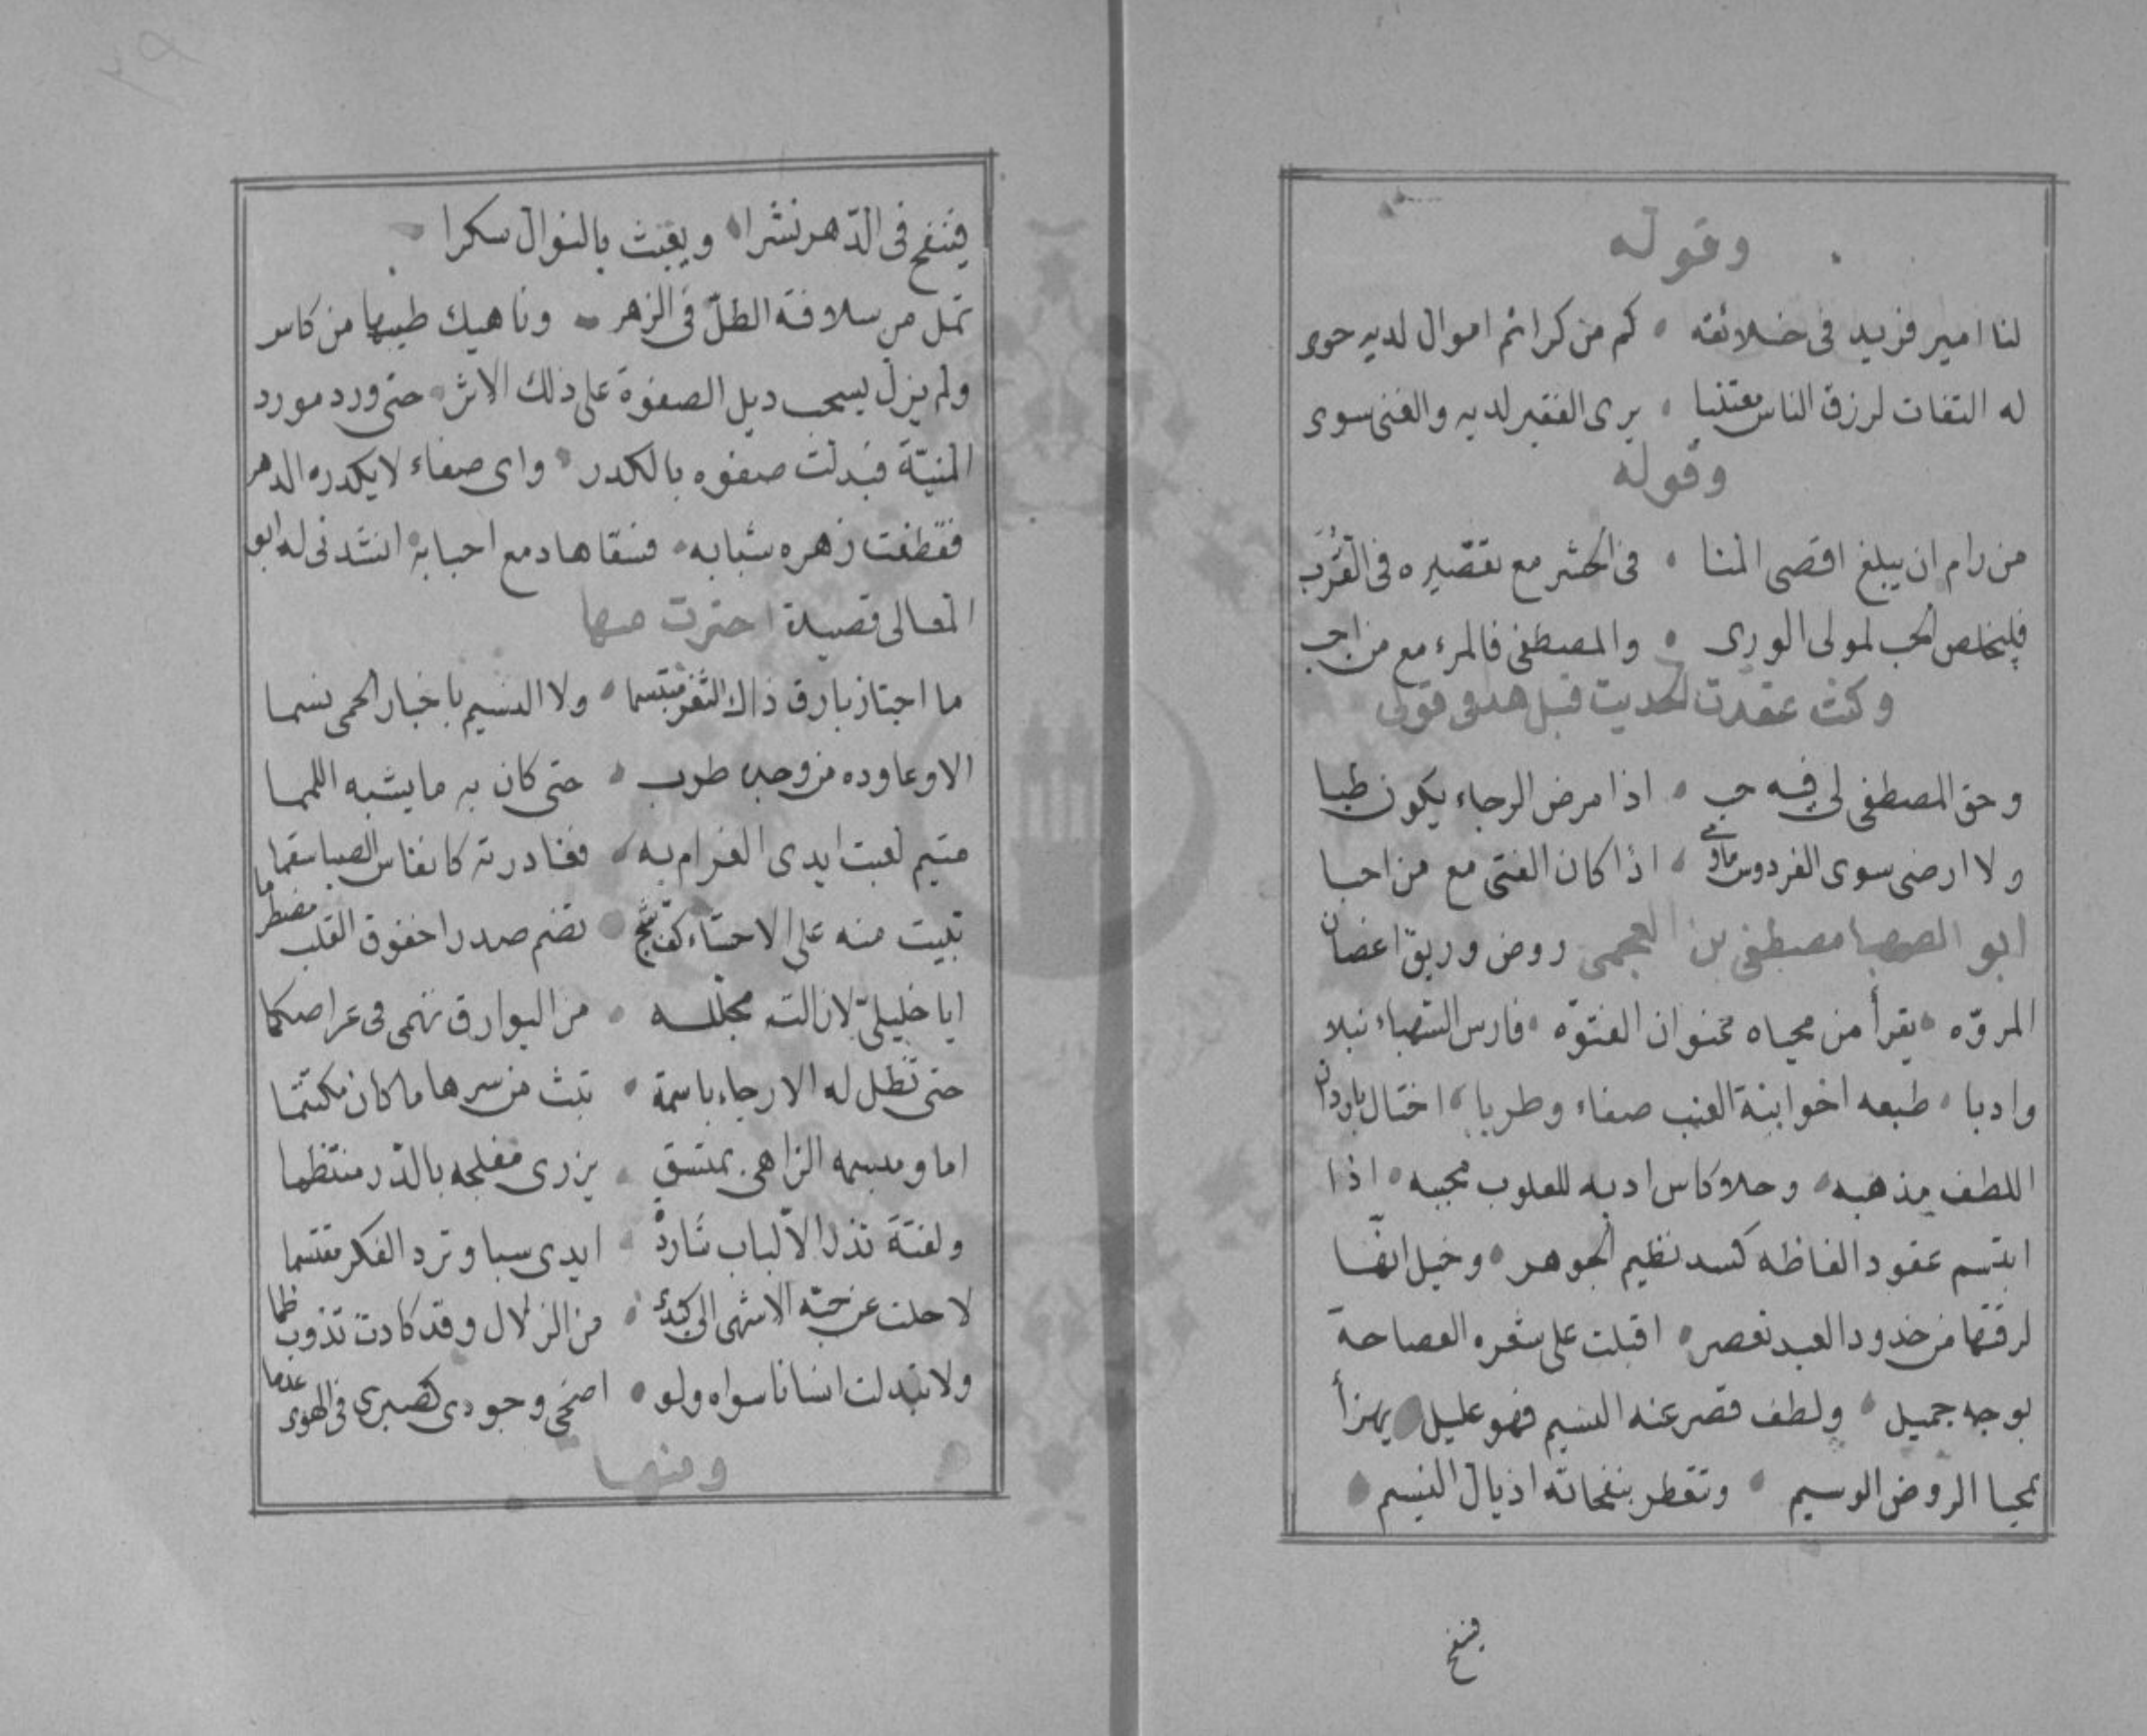 وقوله
لنا امير فريد فى خلائقه • كم من كرائم اموال لديه حوى
له التفات لرزق الناس معتنيا • يرى الفقير لديه والغنى سوى
وقوله
من رام ان يبلغ اقصى المنا • فى الحشر مع تقصيره فى القُرَب
فليخلص الحب لمولى الورى • والمصطفى فالمرء مع من احب
وكنت عقدت الحديث قبل هذا فى قولى
وحق المصطفى لى فيه حب • اذا مرض الرجاء يكون طبا
ولا ارضى سوى الفردوس مأوى • اذا كان الفتى مع من احبا
ابو الصهبا مصطفى بن العجمى روض وريق اغصان
المروّه • يقرأ من محياه عنوان الفتوّه • فارس الشهباء نبلا
وادبا • طبعه اخو ابنة العنب صفاء وطربا • اختال باردان
اللطف مذهبه • وحلا كاس ادبه للقلوب محببه • اذا
ابتسم عقود الفاظه كسد نظيم الجوهر • وخيل انها
لرقتها من خدود الغيد تعصر • اقبلت على شعره الفصاحة
بوجه جميل • ولطف قصر عنه النسيم فهو عليل • يهزأ
بمحيا الروض الوسيم • وتتعطر بنفحاته اذيال النسيم •
فينفح
٢٩
فينفح فى الدّهر نشرا • ويعبث بالنوال سكرا
ثمل من سلافة الطلّ فى الزهر • وناهيك طيبها من كاس
ولم يزل يسحب ذيل الصفوة على ذلك الاثر • حتى ورد مورد
المنيّة فبدلت صفوه بالكدر • واى صفاء لا يكدره الدهر
فقطفت زهره شبابه • فسقاها دمع احبابه • انشدنى له ابو
المعالى قصيدة اخترت منها
ما اجتاز بارق ذاك الثغر مبتسما • ولا النسيم باخبار الحمى نسما
الا وعاوده من وجده طرب • حتى كان به ما يشبه اللمما
متيم لعبت ايدى الغرام به • فغادرته كانفاس الصبا سقما
تبيت منه على الاحشاء كف شج • تضم صدرا خفوق القلب مضطرما
ايا خليلىّ لا زالت مجلله • من البوارق تهمى فى عراصكما
حتى تظل له الارجاء باسمة • تبث من سرها ما كان مكتتما
اما ومبسمه الزاهى بمتسق • يزرى مفلجه بالدّر منتظما
ولفتة تذر الالباب شاردة • ايدى سبا وترد الفكر مقتسما
لا حلت عن حبّه الاشهى الى كبدى • من الزلال وقد كادت تذوب ظما
ولا تبدلت انسانا سواه ولو • اضحى وجودى كصبرى فى الهوى عدما
ومنها